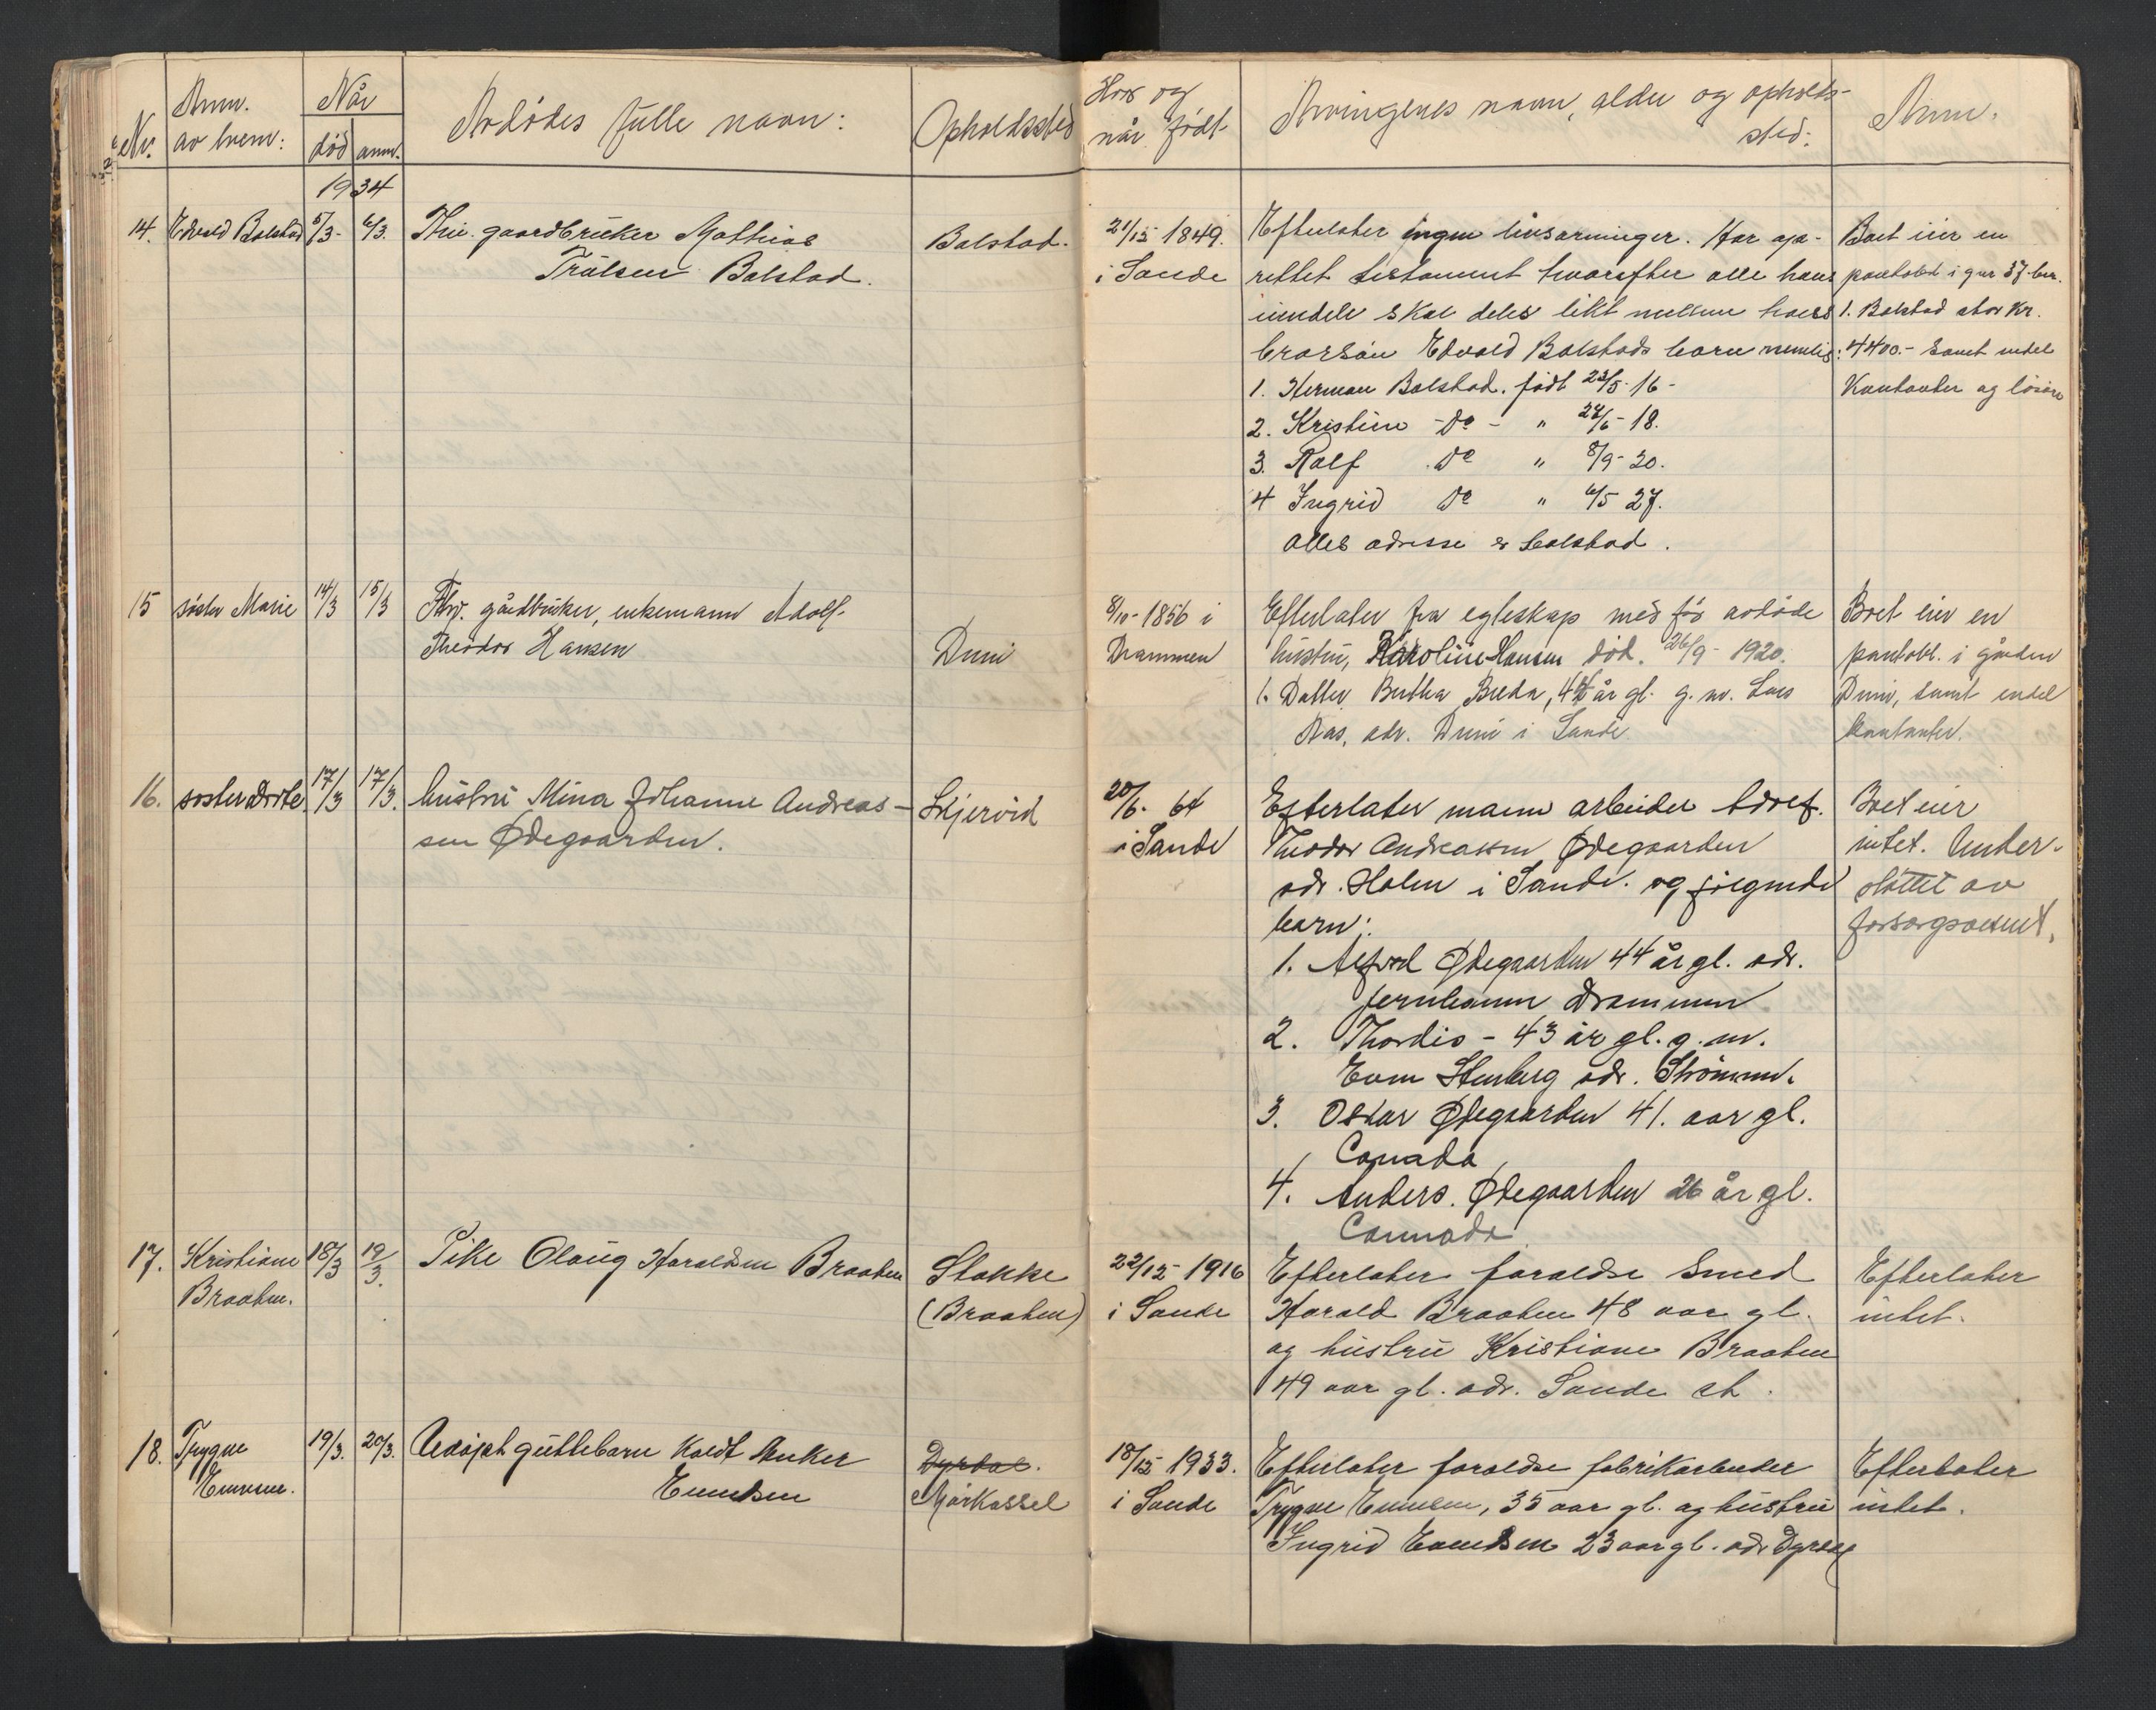 Nr.
Anm.
av hvem:
Når
død
anm.
Avdødes fulle navn:
Opholdssted
Hvor og
når født
Arvingenes navn, alder og opholds-
sted:
Anm.
1934
14. Edvald Bolstad 5/3- 6/3. Fhv. gaardbruker Mathias
Trulsen Bolstad.
Bolstad.
21/12 1849.
i Sande
Efterlater ingen livsarvinger. Har op-
rettet testament hvorefter alle hans
eiendele skal deles likt mellem hans
brorsøn Edvald Bolstads barn nemlig:
1. Herman Bolstad. født 23/5-16-
2. Kristine - Do - " 27/6-18.
3. Rolf . Do " 8/9-20.
4 Ingrid Do " 6/5 27.
Alles adresse er Bolstad.
Boet eier en
pantobl i gnr 37 bnr.
1. Bolstad stor kr.
4400.- samt endel
Kontanter og løsøre
15 søster Marie 14/3 15/3 Fhv. gårdbruker, enkemann Adolf
Theodor Hansen
Duni
8/10-1856 i
Drammen
Efterlater fra egteskap med før avdøde
hustru, Karoline Hansen død. 26/9-1920.
1. Datter Bertha Breda, 44 år gl. g. m. Lars
Aas, adr. Duni i Sande
Boet eier en
pantobl. i gården
Duni, samt endel
kontanter.
16. søster Dorte. 17/3 17/3. hustru Mina Johanne Andreas-
sen Ødegaarden.
Skjervik
20/6-64
i Sande
Efterlater mann arbeider Adolf.
Theodor Andreassen Ødegaarden
adr. Holm i Sande. og følgende
barn:
1. Alfred Ødegaarden 44 år gl. adr.
Jernbanen Drammen
2. Thordis - 43 år gl. g. m.
Even Stenberg adr. Strømm.
3. Oskar Ødegaarden 41. aar gl.
Canada
4. Anders. Ødegaarden 26 år gl.
Cannada
Boet eier
intet. Under-
støttet av
forsorgsvesenet.
17. Kristiane
Braaten.
18/3 19/3.
Pike Olaug Haraldsen Braaten
Stokke
(Braaten)
22/12 1916
i Sande
Efterlater foreldre Smed
Harald Braaten 48 aar gl.
og hustru Kristiane Braaten
49 aar gl. adr. Sande st.
Efterlater
intet.
18. Trygve
Evensen.
19/3. 20/3. Udøpt guttebarn kaldt Anker
Evensen
Dyrdal.
Mørkassel
18/12 1933.
i Sande
Efterlater foreldre fabrikarbeider
Trygve Evensen, 35 aar gl. og hustru
Ingrid Evensen 23 aar gl. adr Dyrdal
Efterlater
intet.